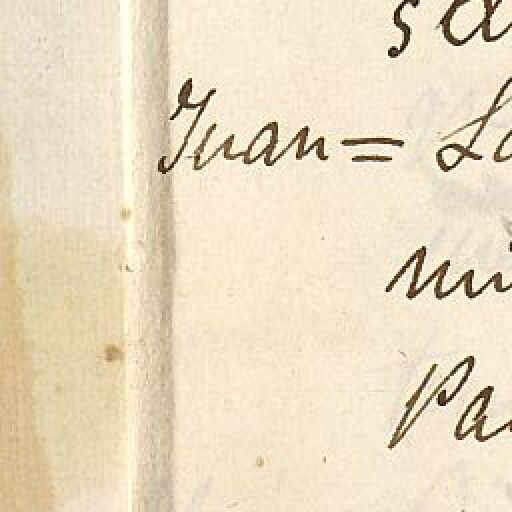 sa
Juan= La
mi
Pa